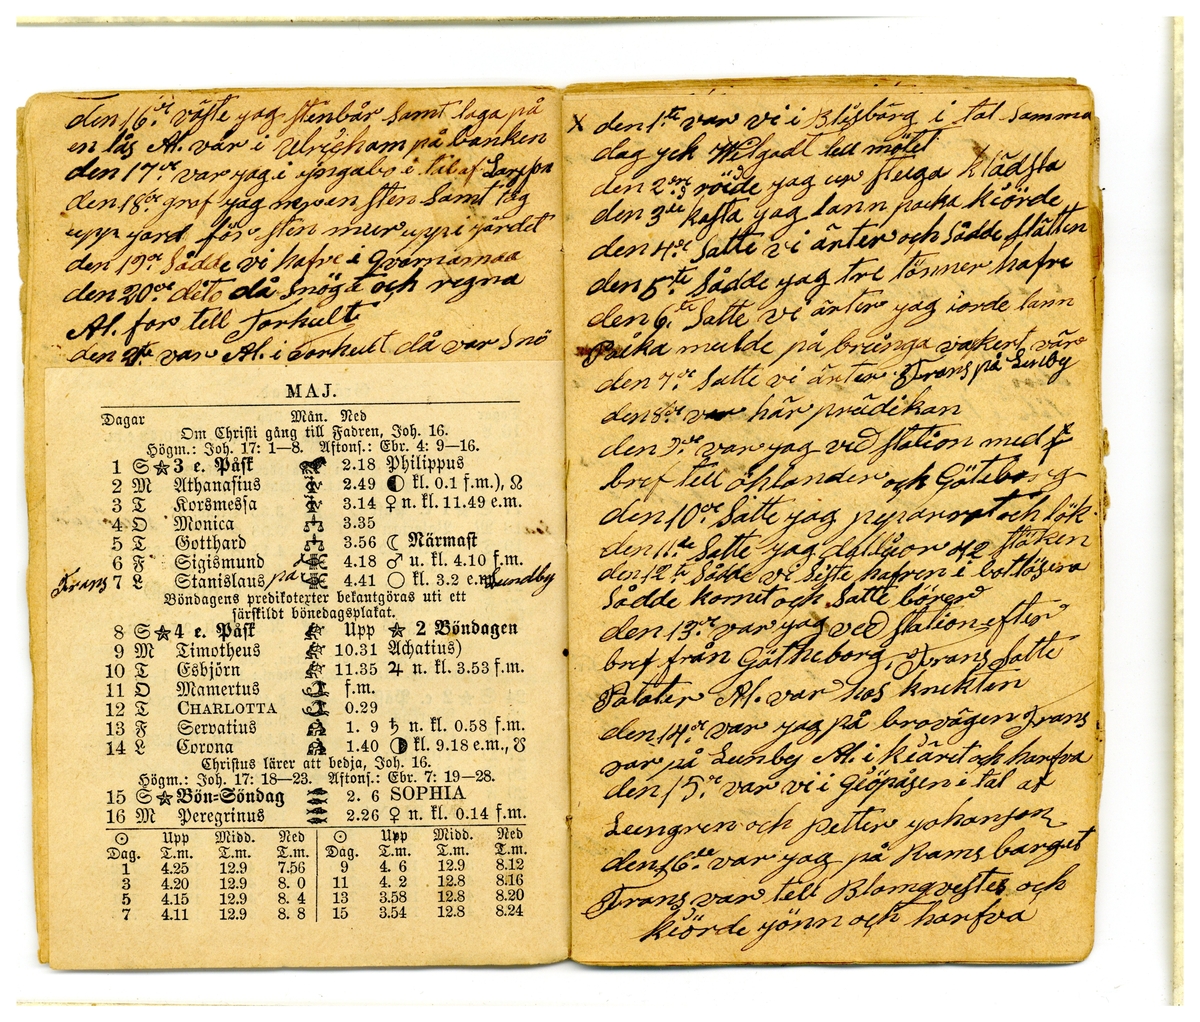 den 16de väfte jag stenbår samt laga på
en lås Al. var i Ulrieham på banken
den 17de var jag i yngabo i tal af
den 18de graf jag sten samt tog
upp jord för sten mur upp i järdet
den 19de sådde vi hafre i qvarnamaa
den 20de dito då snöga och regna
Al. for tell Torhult
den 21te var Al. i Torhult då var snö
MAJ.
Dagar Mån. Ned
Om Christi gång till Fadren, Joh. 16.
Högm.: Joh. 17: 1—8. Aftons.: Ebr. 4: 9—16.
1 S 3 e. Påsk 2.18 Philippus
2 M Athanasius 2.49 ◐ kl. 0.1 f.m.), ☊
3 T Korsmessa 3.14 ♀ n. kl. 11.49 e.m.
4 O Monica ♎ 3.35
5 T Gotthard ♎ 3.56 ☾ Närmast
6 F Sigismund 4.18 ♂ u. kl. 4.10 f.m.
Frans 7 L Stanislaus på 4.41 ○ kl. 3.2 e.m. Lundby
Böndagens predikotexter bekantgöras uti ett
särskildt bönedagsplakat.
8 S 4 e. Påsk Upp ★ 2 Böndagen
9 M Timotheus 10.31 Achatius)
10 T Esbjörn 11.35 ♃ n. kl. 3.53 f.m.
11 O Mamertus f.m.
12 T CHARLOTTA 0.29
13 F Servatius 1. 9 ♄ n. kl. 0.58 f.m.
14 L Corona 1.40 ◑ kl. 9.18 e.m., ☋
Christus lärer att bedja, Joh. 16.
Högm.: Joh. 17: 18—23. Aftons.: Ebr. 7: 19—28.
15 S Bön-Söndag 2. 6 SOPHIA
16 M Peregrinus 2.26 ♀ n. kl. 0.14 f.m.
☉ Upp Midd. Ned ☉ Upp Midd. Ned
Dag. T.m. T.m. T.m. Dag. T.m. T.m. T.m.
1 4.25 12.9 7.56 9 4. 6 12.9 8.12
3 4.20 12.9 8. 0 11 4. 2 12.8 8.16
5 4.15 12.9 8. 4 13 3.58 12.8 8.20
7 4.11 12.9 8. 8 15 3.54 12.8 8.24
x den 1te var vi i Blisbärg i tal samma
dag jck tell mötet
den 2dre röide jag ur stega klädsta
den 3de kasta jag lann packa kiörde
den 4de Satte vi ärter och sådde slätten
den 5te Sådde jag tre tönner hafre
den 6te Satte vi ärter jag iorde lann
Påka mulde på brunga vakert vär
den 7de Satte vi ärter Frans på Lunby
den 8de var här prädikan
den 9de var jag ved station med
bref tell öhlander och Göteborg
den 10de Satte jag peparrot och lök
den 11te Satte jag 42 stöcken
den 12te Sådde vi siste hafren i
Sådde komit och satte börer
den 13de var jag ved station efter
bref från Götheborg, Frans Satte
Patater Al. var hos knekten
den 14de var jag på brovägen Frans
var på Lunby Al. i kiäret och harfva
den 15de var vi i giöpåsen i tal af
Lungren och petter johanson
den 16de var jag på Ramsbarget
Frans var tell Blomqvestes och
kiörde jönn och harfva